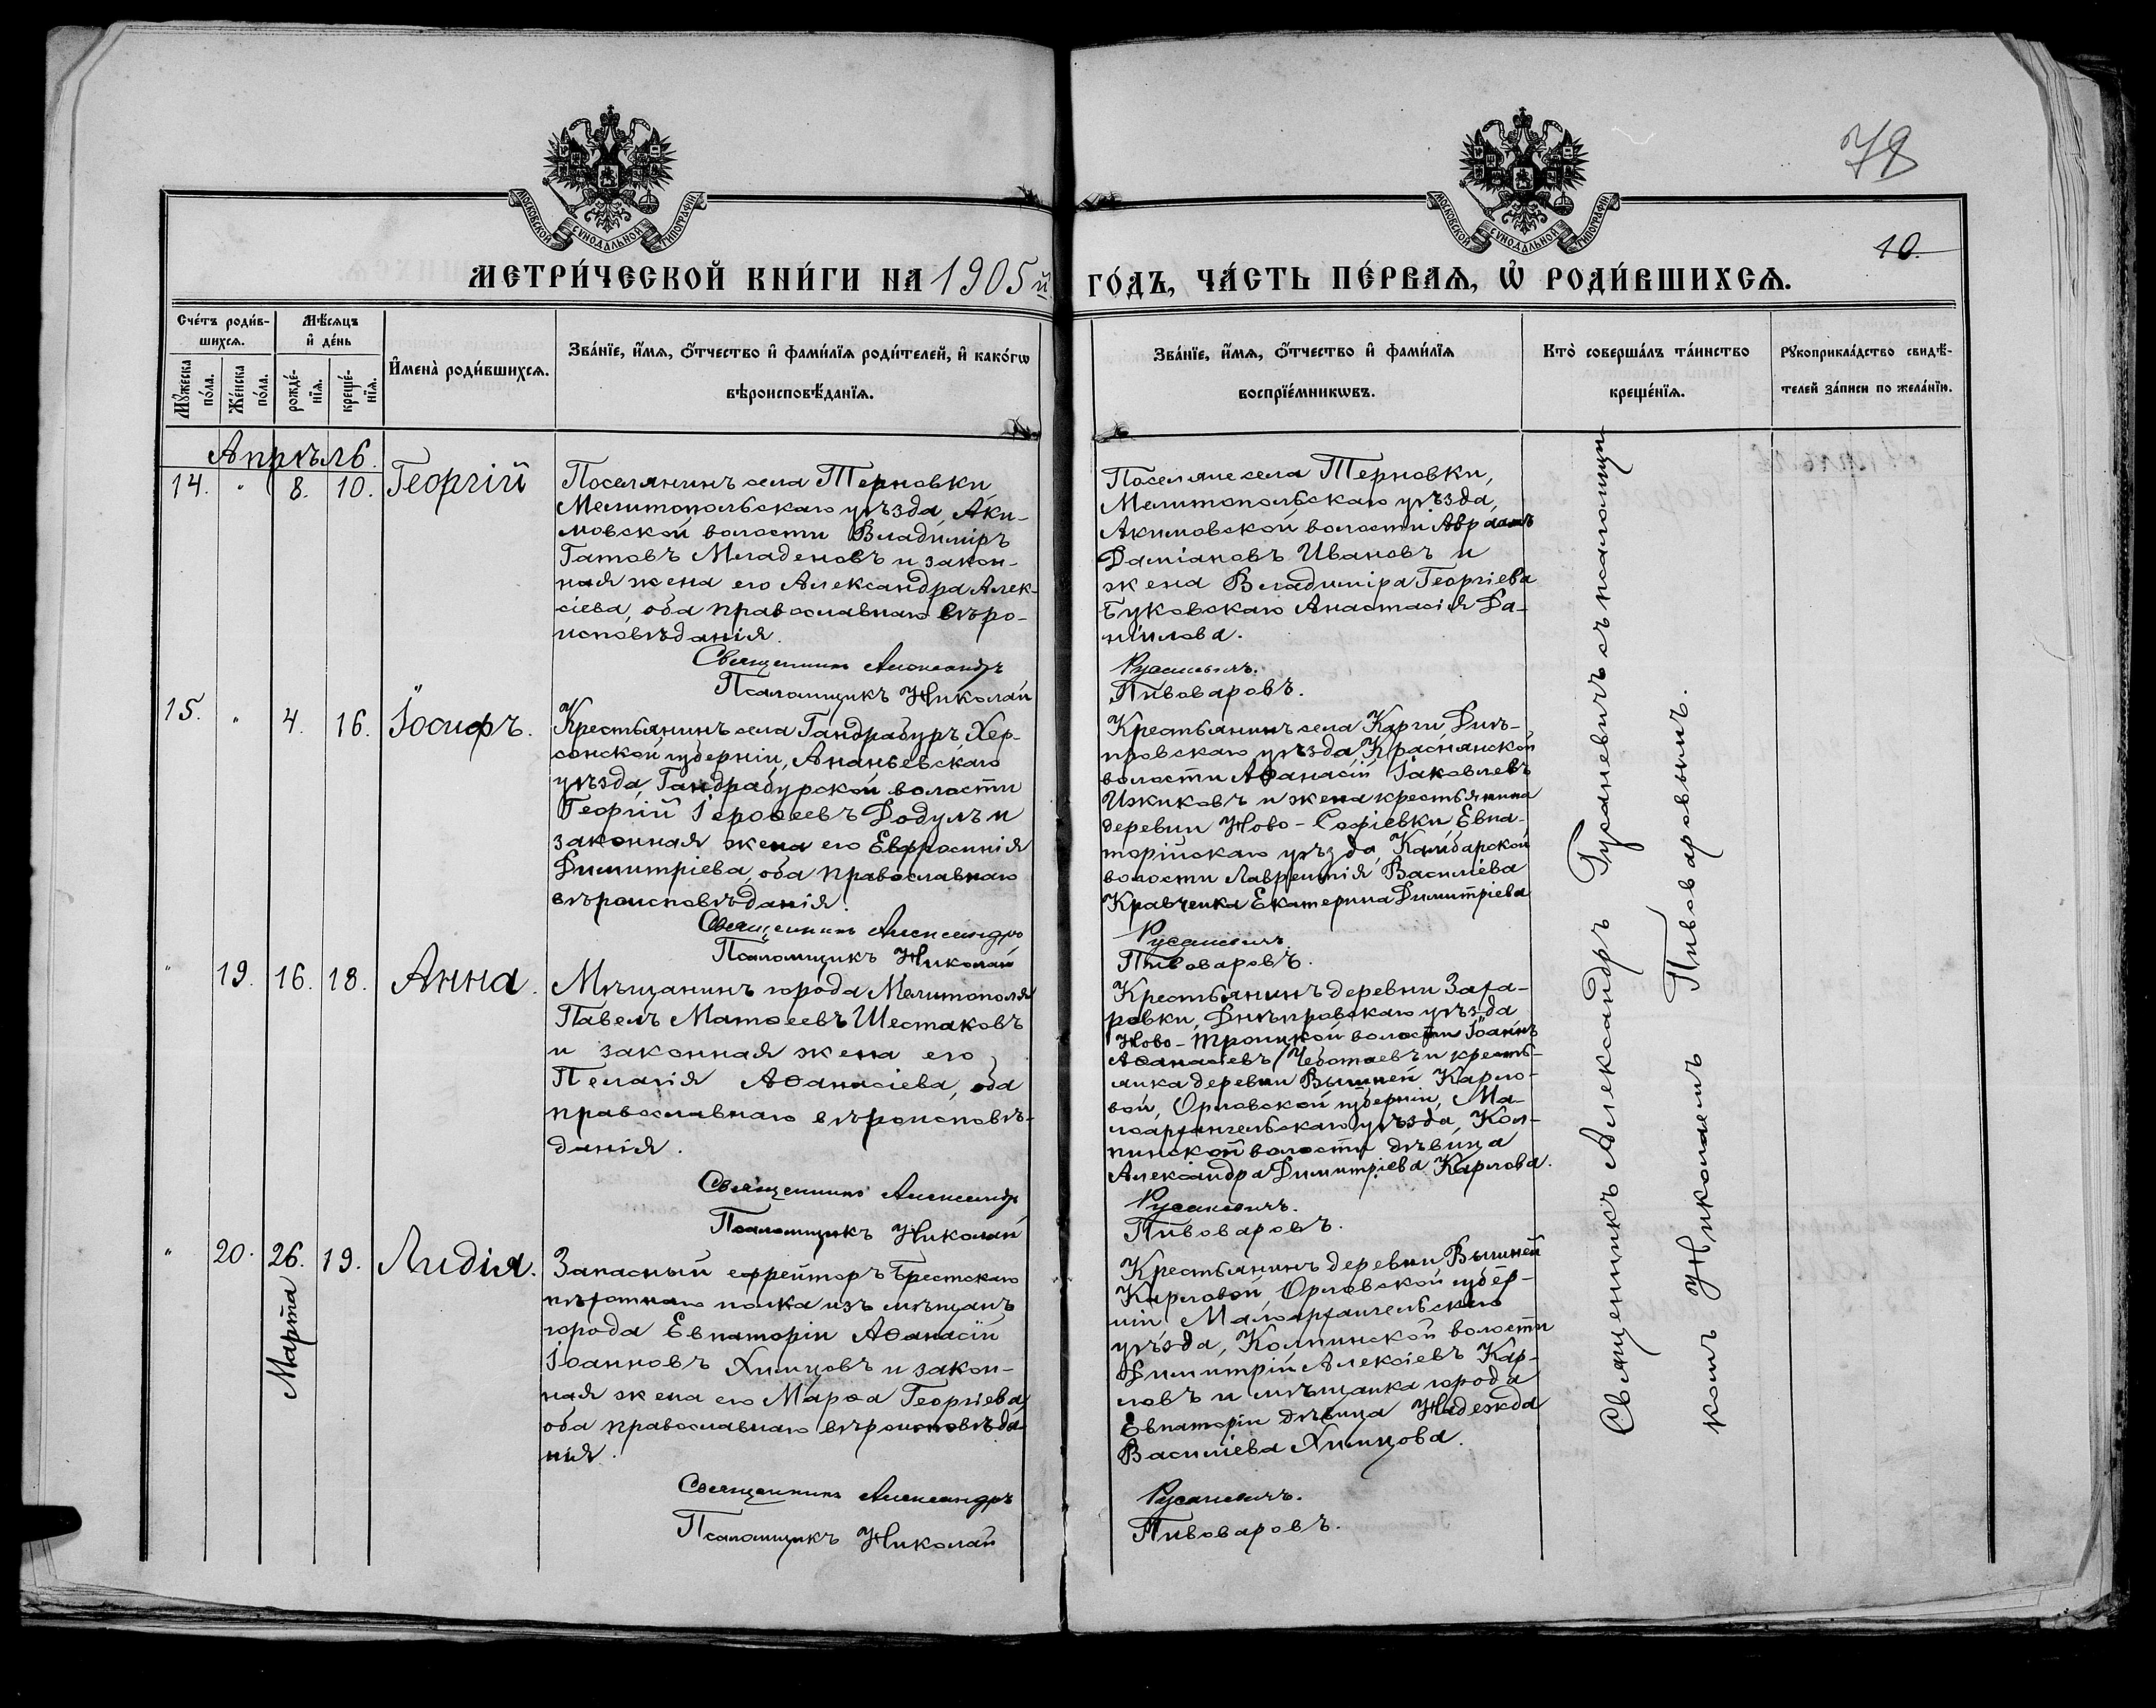 78
10.
МОСКОВСКОЙ СѴНОДАЛЬНОЙ ТИПОГРАФІИ
МОСКОВСКОЙ СѴНОДАЛЬНОЙ ТИПОГРАФІИ
МЕТРИ́ЧЕСКОЙ КНИ́ГИ НА 1905 й ГО́ДЪ, ЧА́СТЬ ПЕ́РВАѦ, Ѡ҆ РОДИ́ВШИХСѦ.
Сче́тъ роди́в-
шихсѧ.
Мꙋжеска по́ла.
Же́нска по́ла.
Мѣ́сѧцъ
и҆ де́нь
рожде́-
нїѧ.
креще́-
нїѧ.
И҆мена̀ роди́вшихсѧ.
Зва́нїе, и҆́мѧ, ѻ҆́тчество и҆ фами́лїѧ роди́телей, и҆ како́гѡ
вѣроисповѣ́данїѧ.
Зва́нїе, и҆́мѧ, ѻ҆́тчество и҆ фами́лїѧ
воспрїе́мникѡвъ.
Кто̀ соверша́лъ та́инство
креще́нїѧ.
Рꙋкоприкла́дство свидѣ́-
телей за́писи по жела́нїю.
Апрѣль.
14. " 8. 10. Георгій
Поселянинъ села Терновки,
Мелитопольскаго уѣзда, Аки-
мовской волости Владиміръ
Гатовъ Младеновъ и закон-
ная жена его Александра Алек-
сіева, оба православнаго вѣро-
исповѣданія.
Священникъ Александръ
Псаломщикъ Николай
Поселяне села Терновки,
Мелитопольскаго уѣзда,
Акимовской волости Авраамъ
Даміановъ Ивановъ и
жена Владиміра Георгіева
Буковскаго Анастасія Да-
ніилова.
Русаневичъ.
Пивоваровъ.
15. " 4. 16. Іосифъ.
Крестьянинъ села Гандрабуръ, Хер-
сонской губерніи, Ананьевскаго
уѣзда, Гандрабурской волости
Георгій Іероѳеевъ Додулъ и
законная жена его Евфросинія
Димитріева, оба православнаго
вѣроисповѣданія.
Священникъ Александръ
Псаломщикъ Николай
Крестьянинъ села Карги, Днѣ-
провскаго уѣзда, Краснянской
волости Аѳанасій Іаковлевъ
Ижиковъ и жена крестьянина
деревни Ново-Софіевки Евпа-
торійскаго уѣзда, Камбарской
волости Лаврентія Василіева
Кравченка Екатерина Димитріева
Русаневичъ.
Пивоваровъ.
" 19. 16. 18. Анна.
Мѣщанинъ города Мелитополя
Павелъ Матѳеевъ Шестаковъ
и законная жена его
Пелагія Аѳанасіева, оба
православнаго вѣроисповѣ-
данія.
Священникъ Александръ
Псаломщикъ Николай
Крестьянинъ деревни Заха-
ровки, Днѣпровскаго уѣзда
Ново-Троицкой волости Іоаннъ
Аѳанасіевъ Чеботаевъ и кресть-
янка деревни Вышней Карло-
вой, Орловской губерніи, Ма-
лоархангельскаго уѣзда, Кол-
пинской волости дѣвица
Александра Димитріева Карлова.
Русаневичъ.
Пивоваровъ.
" 20. 26. 19. Лидія.
Марта
Запасный ефрейторъ Брестскаго
пѣхотнаго полка изъ мѣщанъ
города Евпаторіи Аѳанасій
Іоанновъ Химцовъ и закон-
ная жена его Марѳа Георгіева,
оба православнаго вѣроисповѣда
нія.
Священникъ Александръ
Псаломщикъ Николай
Крестьянинъ деревни Вышней
Карловой, Орловской губер-
ніи, Малоархангельскаго
уѣзда, Колпинской волости
Димитрій Алексіевъ Кар-
ловъ и мѣщанка города
Евпаторіи дѣвица Надежда
Василіева Химцова.
Русаневичъ.
Пивоваровъ.
Священникъ Александръ Русаневичъ съ псаломщи-
комъ Николаемъ Пивоваровымъ.